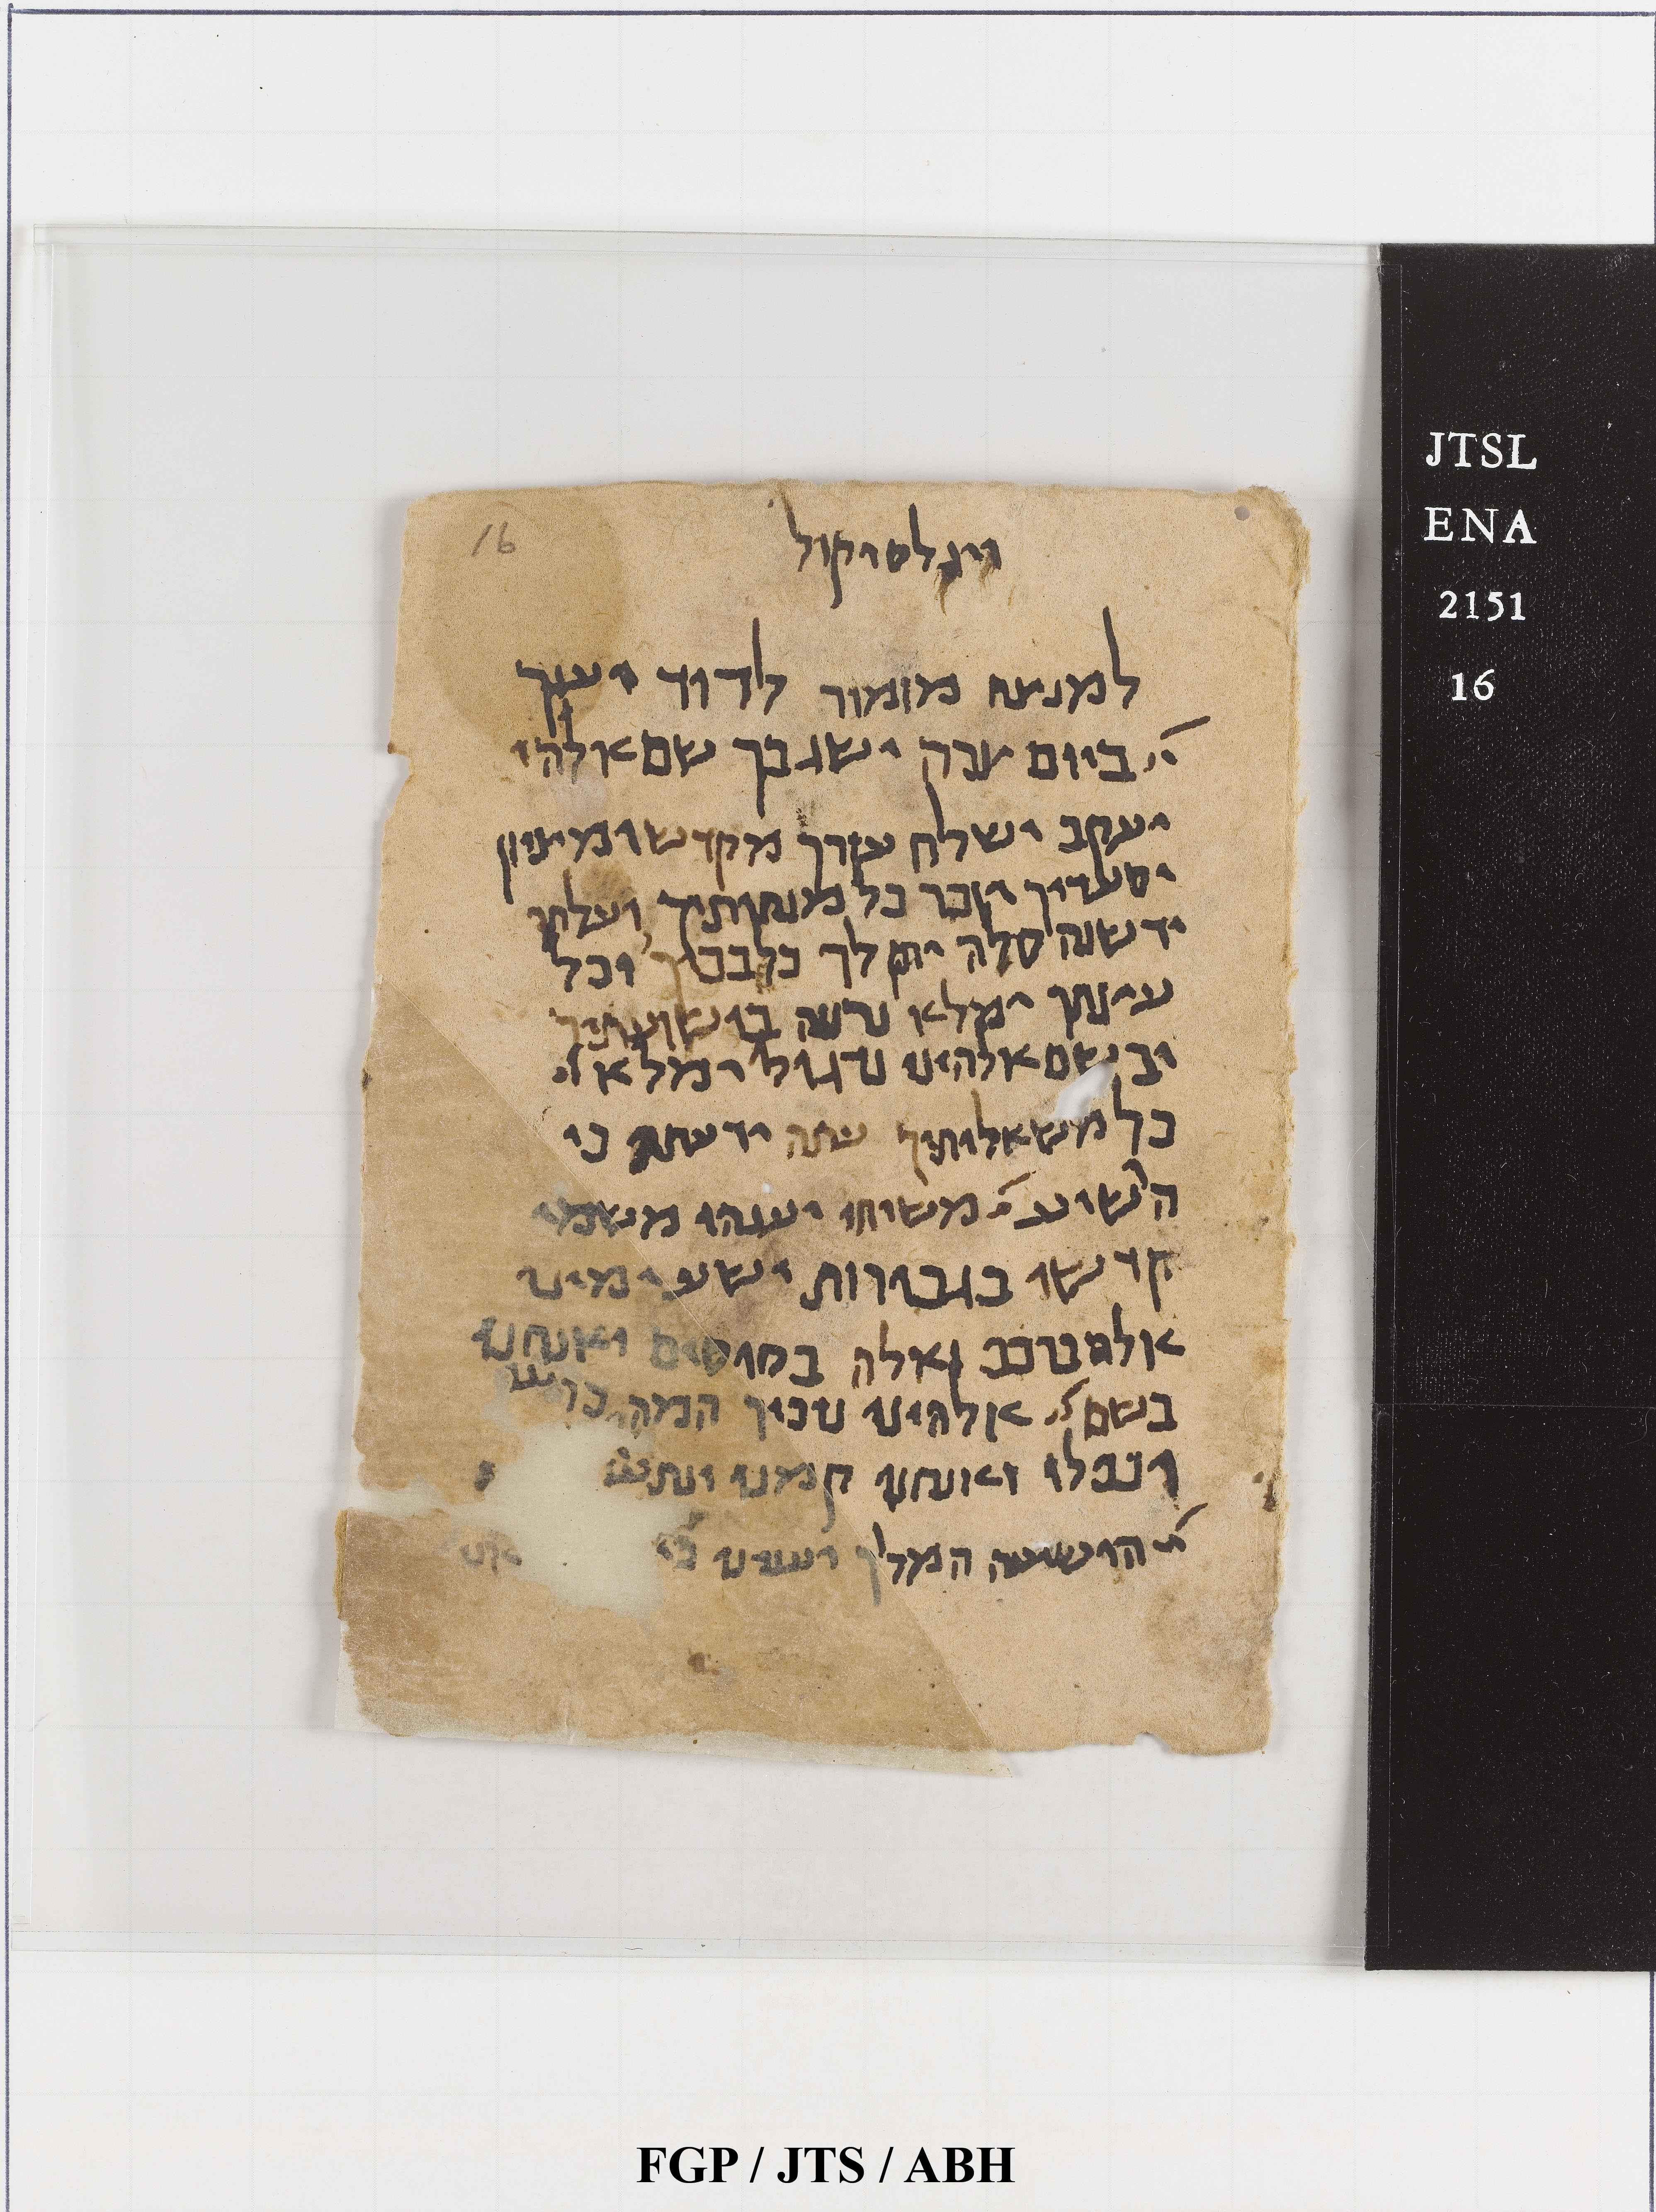 16
למנצח מזמור לדוד יענך
יי ביום צרה ישגבך שם אלהי
יעקב ישלח עזרך מקדש ומציון
יסעדיך יזכר כל מנחתיך ועלתך
ידשנה סלה יתן לך כלבבך וכל
עיצתך ימלא נרננה בישועתיך
ובשם אלהינו נדגול ימלא יי
כל משאלותיך עתה ידעתי כי
השיע יי משיחו יענהו משמי
קדשו בגבורות ישע ימינו
אלה ברכב ואלה בסוסים ואנחנו
בשם יי אלהינו נזכיר המה כרעו
ונפלו ואנחנו קמנו ונתע
יי הושיעה המלך יעננו
JTSL
ENA
2151
16
FGP / JTS / ABH